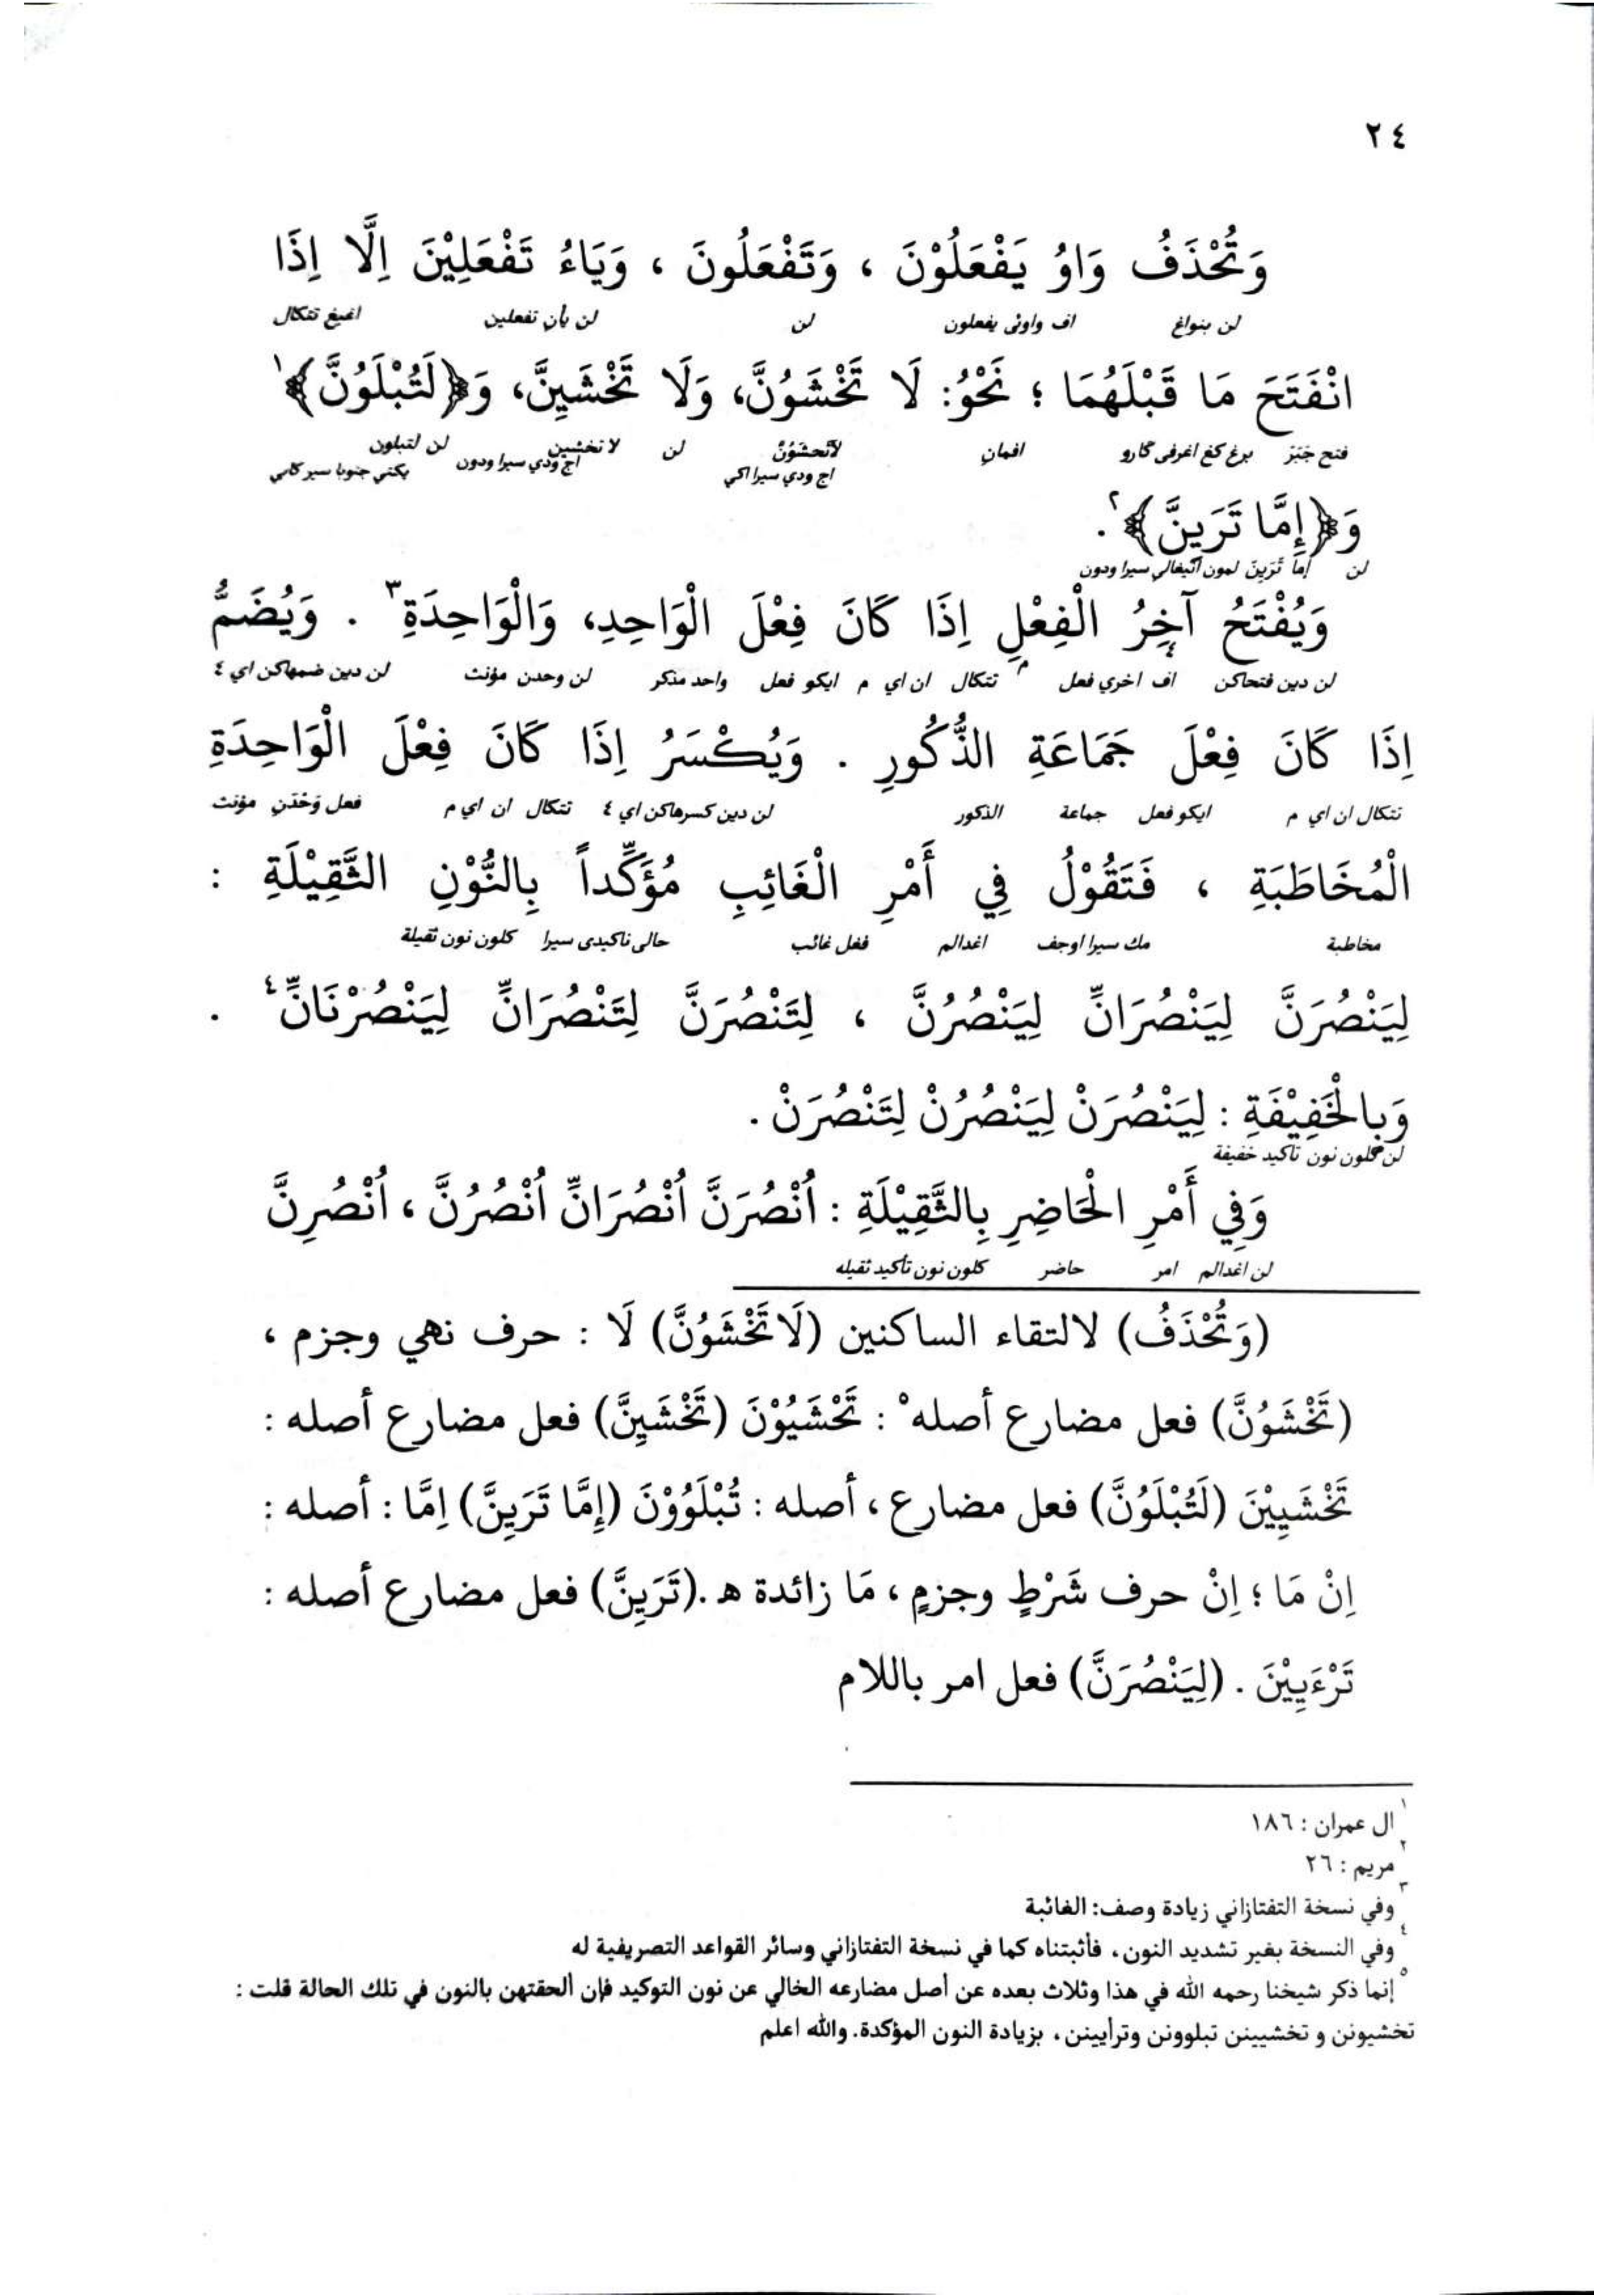 ٢٤
وَتُحْذَفُ وَاوُ يَفْعَلُوْنَ ، وَتَفْعَلُونَ ، وَيَاءُ تَفْعَلِيْنَ اِلَّا اِذَا
لن بنواغ اف واونى يفعلون لن لن يأن تفعلين اغيغ تتكال
انْفَتَحَ مَا قَبْلَهُمَا ؛ نَحْوُ: لَا تَخْشَوُنَّ، وَلَا تَخْشَيِنَّ، وَ﴿لَتُبْلَوُنَّ﴾١
فتح برغ كغ اغرفى كارو افمان لن لا تخشين لن لتبلون
اج ودي سيرا اكي اج ودي سيرا ودون
وَ﴿إِمَّا تَرَيِنَّ﴾٢ .
لن إما ترين سيرا ودون
وَيُفْتَحُ آخِرُ الْفِعْلِ اِذَا كَانَ فِعْلَ الْوَاحِدِ، وَالْوَاحِدَةِ٣ . وَيُضَمُّ
لن دين فتحاكن اف اخري فعل تتكال ان اي م ايكو فعل واحد مذكر لن وحدن مؤنث لن دين ضمهاكن اي ٤
اِذَا كَانَ فِعْلَ جَمَاعَةِ الذُّكُورِ . وَيُكْسَرُ اِذَا كَانَ فِعْلَ الْوَاحِدَةِ
تتكال ان اي م ايكو فعل جماعة الذكور لن دين كسرهاكن اي ٤ تتكال ان اي م فعل وَحْدَنِ مؤنث
الْمُخَاطَبَةِ ، فَتَقُوْلُ فِي أَمْرِ الْغَائِبِ مُؤَكِّداً بِالنُّوْنِ الثَّقِيْلَةِ :
مخاطبة مك سيرا اوجف اغدالم فغل غائب حالى تاكيدى سيرا كلون نون ثقيلة
لِيَنْصُرَنَّ لِيَنْصُرَانِّ لِيَنْصُرُنَّ ، لِتَنْصُرَنَّ لِتَنْصُرَانِّ لِيَنْصُرْنَانِّ٤ .
وَبِالْخَفِيْفَةِ : لِيَنْصُرَنْ لِيَنْصُرُنْ لِتَنْصُرَنْ .
لن كلون نون تأكيد خفيفة
وَفِي أَمْرِ الْحَاضِرِ بِالثَّقِيْلَةِ : اُنْصُرَنَّ اُنْصُرَانِّ اُنْصُرُنَّ ، اُنْصُرِنَّ
لن اغدالم امر حاضر كلون نون تأكيد ثقيله
(وَتُحْذَفُ) لالتقاء الساكنين (لَاتَخْشَوُنَّ) لَا : حرف نهي وجزم ،
(تَخْشَوُنَّ) فعل مضارع أصله٥ : تَخْشَيُوْنَ (تَخْشَيِنَّ) فعل مضارع أصله :
تَخْشَيِيْنَ (لَتُبْلَوُنَّ) فعل مضارع ، أصله : تُبْلَوُوْنَ (إِمَّا تَرَيِنَّ) اِمَّا : أصله :
اِنْ مَا ؛ اِنْ حرف شَرْطٍ وجزمٍ ، مَا زائدة ه .(تَرَيِنَّ) فعل مضارع أصله :
تَرْءَيِيْنَ . (لِيَنْصُرَنَّ) فعل امر باللام
١ ال عمران : ١٨٦
٢ مريم : ٢٦
٣ وفي نسخة التفتازاني زيادة وصف: الغائبة
٤ وفي النسخة بغير تشديد النون، فأثبتناه كما في نسخة التفتازاني وسائر القواعد التصريفية له
٥ إنما ذكر شيخنا رحمه الله في هذا وثلاث بعده عن أصل مضارعه الخالي عن نون التوكيد فإن ألحقتهن بالنون في تلك الحالة قلت :
تخشيونن و تخشيينن تبلوونن وترأيينن، بزيادة النون المؤكدة. والله اعلم